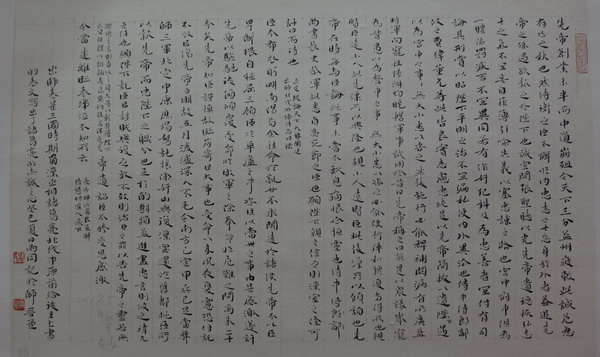 先帝創業未半而中道崩殂今天下三分益州疲敝此誠危急
存亡之秋也然侍衛之臣不懈於內忠志之士忘身於外者蓋追先
帝之殊遇欲報之於陛下也誠宜開張聖聽以光先帝遺德恢弘志
士之氣不宜妄自菲薄引喻失義以塞忠諫之路也宮中府中俱為
一體陟罰臧否不宜異同若有作奸犯科及為忠善者宜付有司
論其刑賞以昭陛下平明之治不宜偏私使內外異法也侍中侍郎郭
攸之費禕董允等此皆良實志慮忠純是以先帝簡拔以遺陛下愚
以為宮中之事事無大小悉以咨之然後施行必能裨補闕漏有所廣益
將軍向寵性行淑均曉暢軍事試用於昔日先帝稱之曰能是以眾議舉寵
為督愚以為營中之事事無大小悉以咨之必能使行陣和睦優劣得所也親
賢臣遠小人此先漢所以興隆也親小人遠賢臣此後漢所以傾頹也先
帝在時每與臣論此事未嘗不歎息痛恨於桓靈也侍中尚
書長史參軍此悉貞亮死節之臣也願陛下親之信之則漢室之隆可
計日而待也
臣本布衣躬耕南陽苟全性命於亂世不求聞達於諸侯先帝不以臣
卑鄙猥自枉屈三顧臣於草廬之中咨臣以當世之事由是感激遂許
先帝以驅馳後值傾覆受任於敗軍之際奉命於危難之間爾來二十
有一年矣先帝知臣謹慎故臨崩寄臣以大事也受命以來夙夜憂慮恐付託
不效以傷先帝之明故五月渡瀘深入不毛今南方已定甲兵已足當獎
帥三軍北定中原庶竭駑鈍攘除奸凶興復漢室還於舊都此臣所
以報先帝而忠陛下之職分也至於斟酌損益進盡忠言則攸之禕允
之任也願陛下託臣以討賊興復之效不效則治臣之罪以告先帝之靈若無
遺詔臣不勝受恩感激
今當遠離臨表涕泣不知所云
出師表是三國時期蜀漢丞相諸葛亮北伐中原前給後主上書
的表